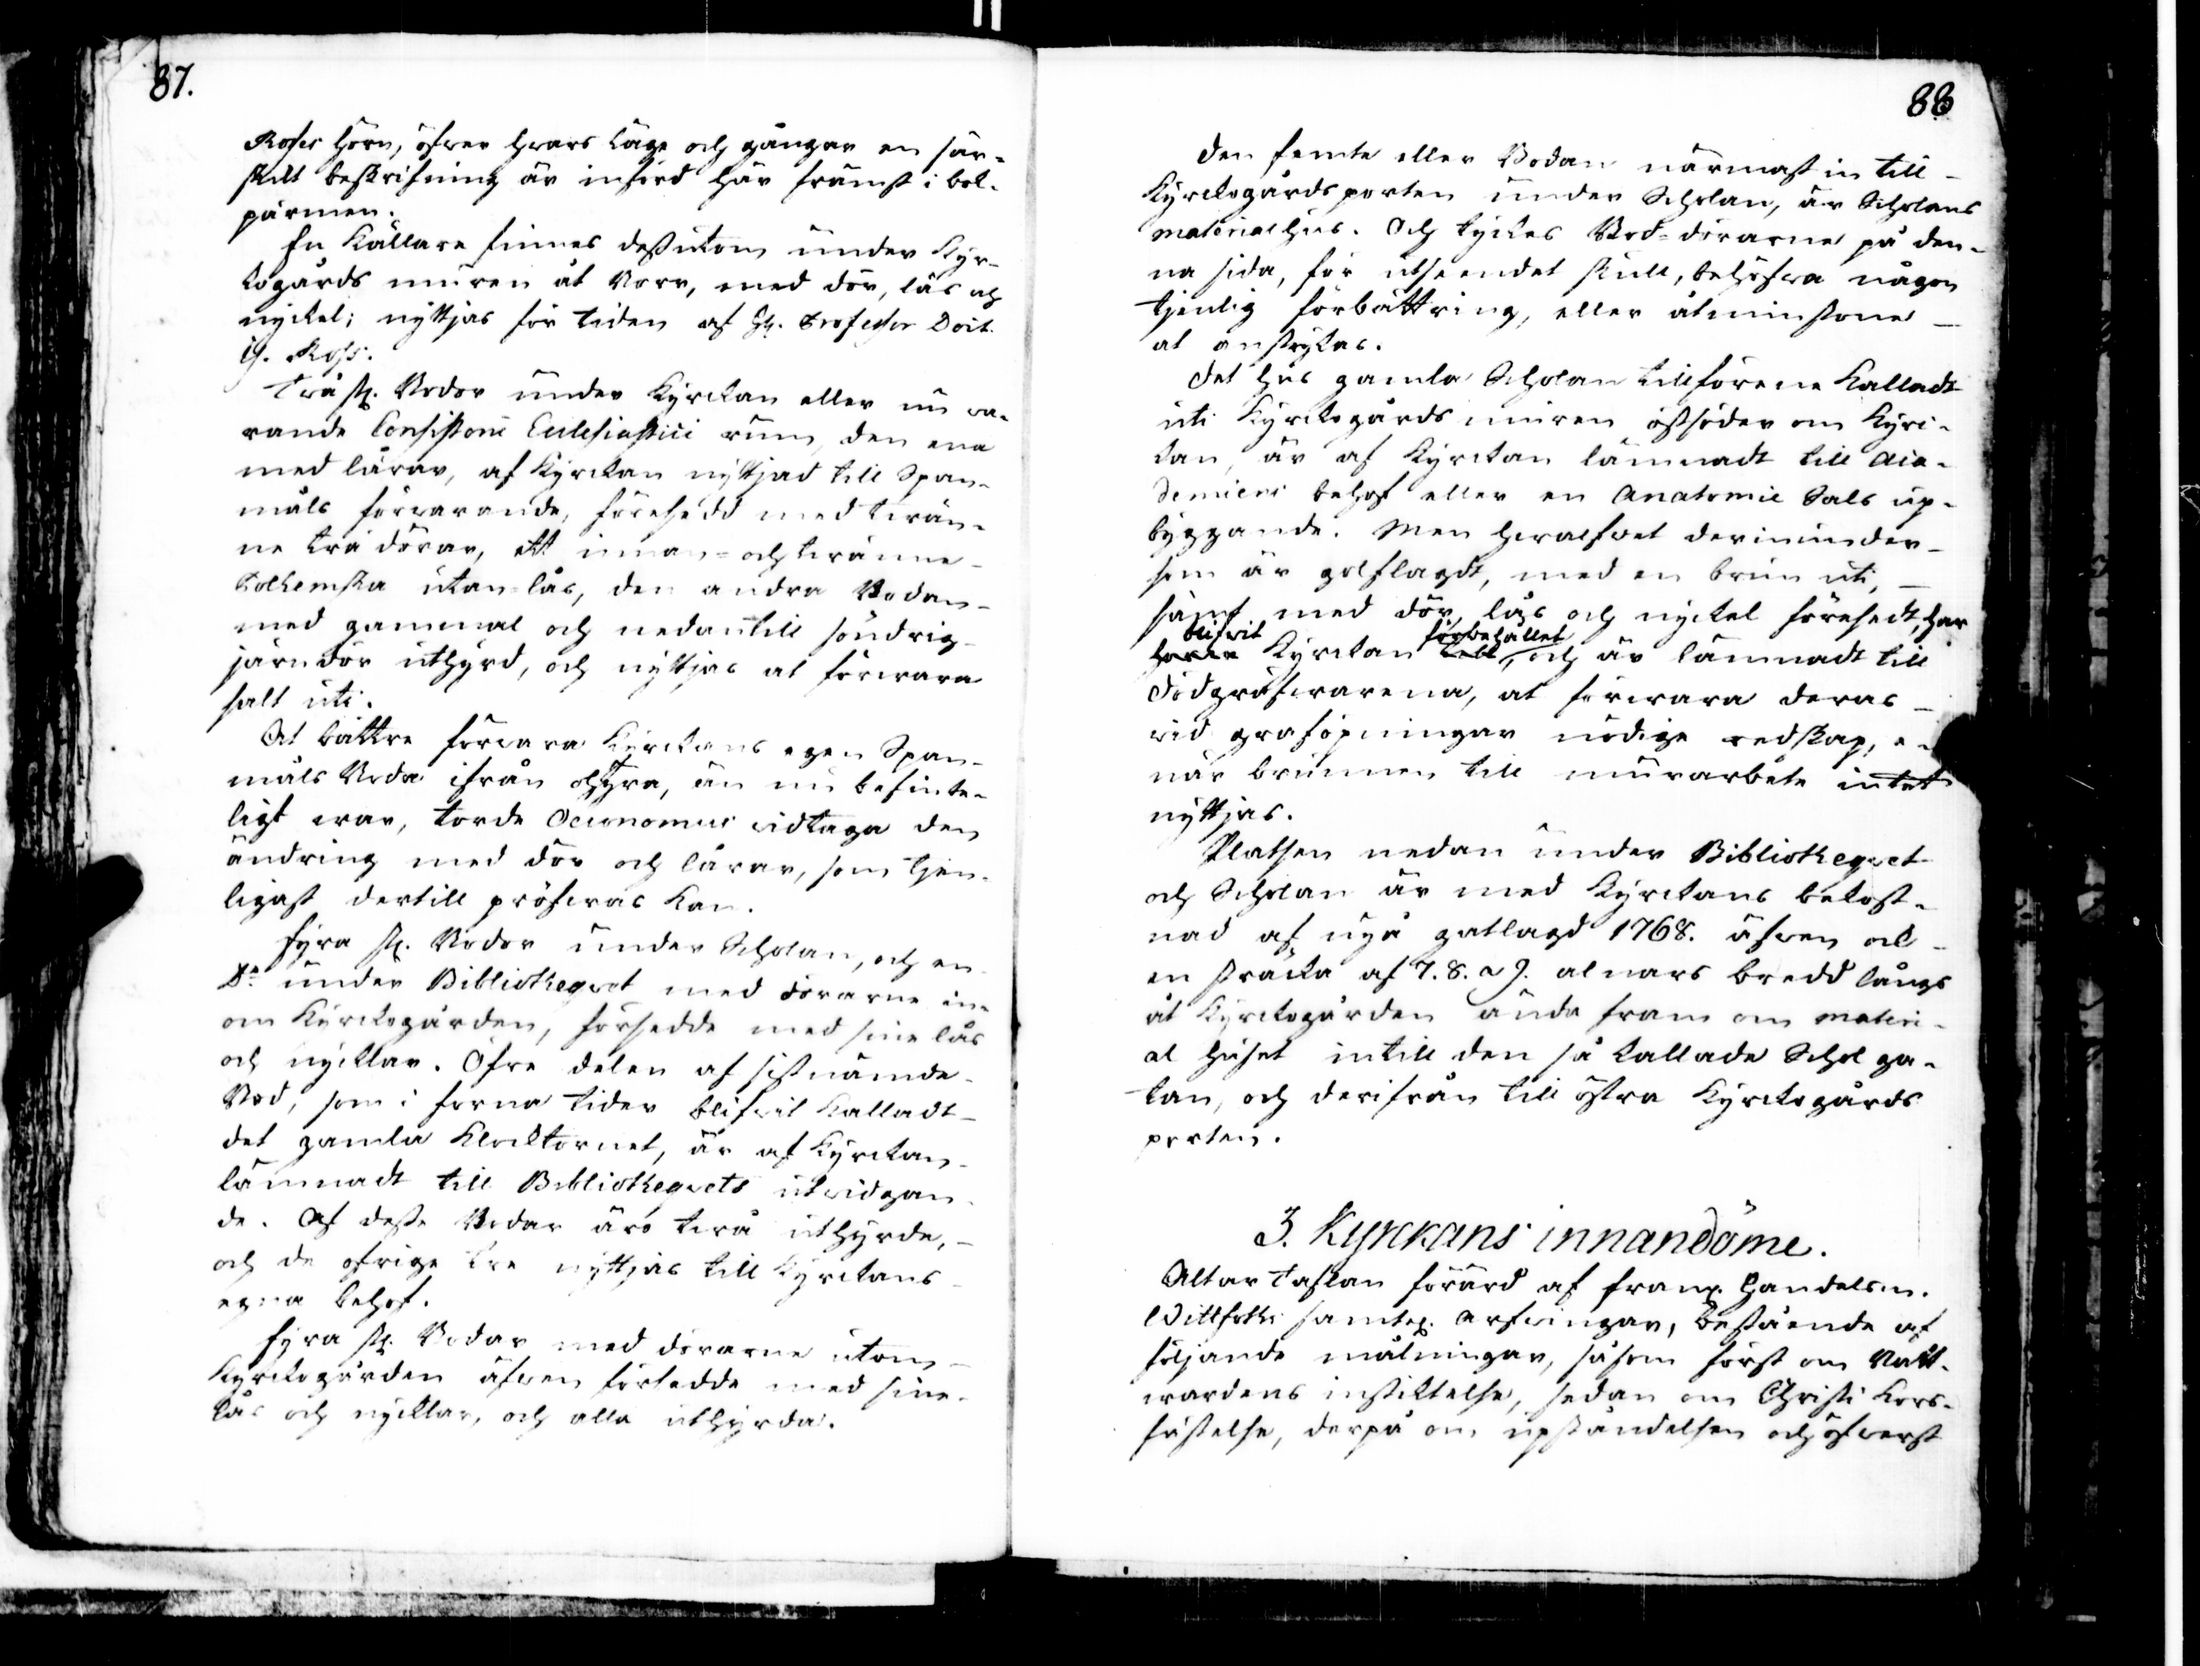 87.
Rosses hörn, öfwer hwars läge och gångar en sär-
skilt beskrifning är införd här främst i bok-
pärmen.
En Källare finnes dessutom under Kyr-
kogårds muren åt Norr, med dör, lås och
nyckel; nyttjas för tiden af Hr. Professor Doct.
Ross.
Två st. Bodor under Kyrckan eller nu wa-
rande Consistorii Ecclesiastici rum, den ena
med lårar, af Kyrckan nyttjad till Span-
måls förwarande, försedd med twän-
ne trä dörar, ett innan- och twänne
Polhemska utan-lås, den andra Bodan
med gammal och nedantill söndrig
järndör uthyrd, och nyttjas at förwara
salt uti.
At bättre förwara Kyrckans egen Span-
måls Boda ifrån ohyra, än nu befinte-
ligt war, torde Oeconomus widtaga den
ändring med dör och lårar, som tjen-
ligast dertill pröfwas kan.
Fyra st. Bodor under Scholan, och en
Do under Bibliotheqvet med dörarne in-
om Kyrckogården, försedde med sine lås
och nycklar. Öfre delen af sistnämde
Bod, som i forna tider blifwit kalladt
det gamla Klocktornet, är af Kyrckan
lämnadt till Bibliotheqvets utwidgan-
de. Af desse Bodar äro twå uthyrde,
och de öfrige tre nyttjas till Kyrckans
egna behof.
Fyra st. Bodar med dörarne utom
Kyrckogården äfwen försedde med sine
lås och nycklar, och alla uthyrda.
88
Den femte eller Bodan närmast in till
Kyrckogårdsporten under Scholan, är Scholans
materialhus. Och tyckes Bod-dörarne på den-
na sida, för utseendet skull, behöfwa någon
tjenlig förbättring, eller åtminstone
at anstrykas.
Det hus gamla Scholan tillförene Kalladt
uti Kyrckogårds muren östsöder om Kyrc-
kan, är af Kyrckan lämnadt till Aca-
demiens behof eller en Anatomie Sals up-
byggande. Men hwalfwet derinunder
som är golflagdt, med en brun uti,
samt med dör, lås och nyckel försedt, har
blifwit Kyrckan förbehållet, och är lämnadt till
Dödgräfwarena, at förwara deras
wid graföpningar nödige redskap,
när brunnen till murarbete intet
nyttjas.
Platsen nedan under Bibliotheqvet
och Scholan är med Kyrckans bekost-
nad af nyå gatlagd 1768. äfwen ock
en sträcka af 7. 8. a 9. alnars bredd långs
åt Kyrckogården ända fram om materi-
al huset intill den så kallade Schol ga-
tan, och derifrån till östra Kyrckogårds
porten.
3. Kyrckans innandöme.
Altar taflan förärd af framl. Handelsm.
Wittfoths samtel. Arfwingar, bestående af
följande målningar, såsom först om Natt-
wardens instiktelse, sedan om Christi Kors-
fästelse, derpå om upståndelsen och öfwerst